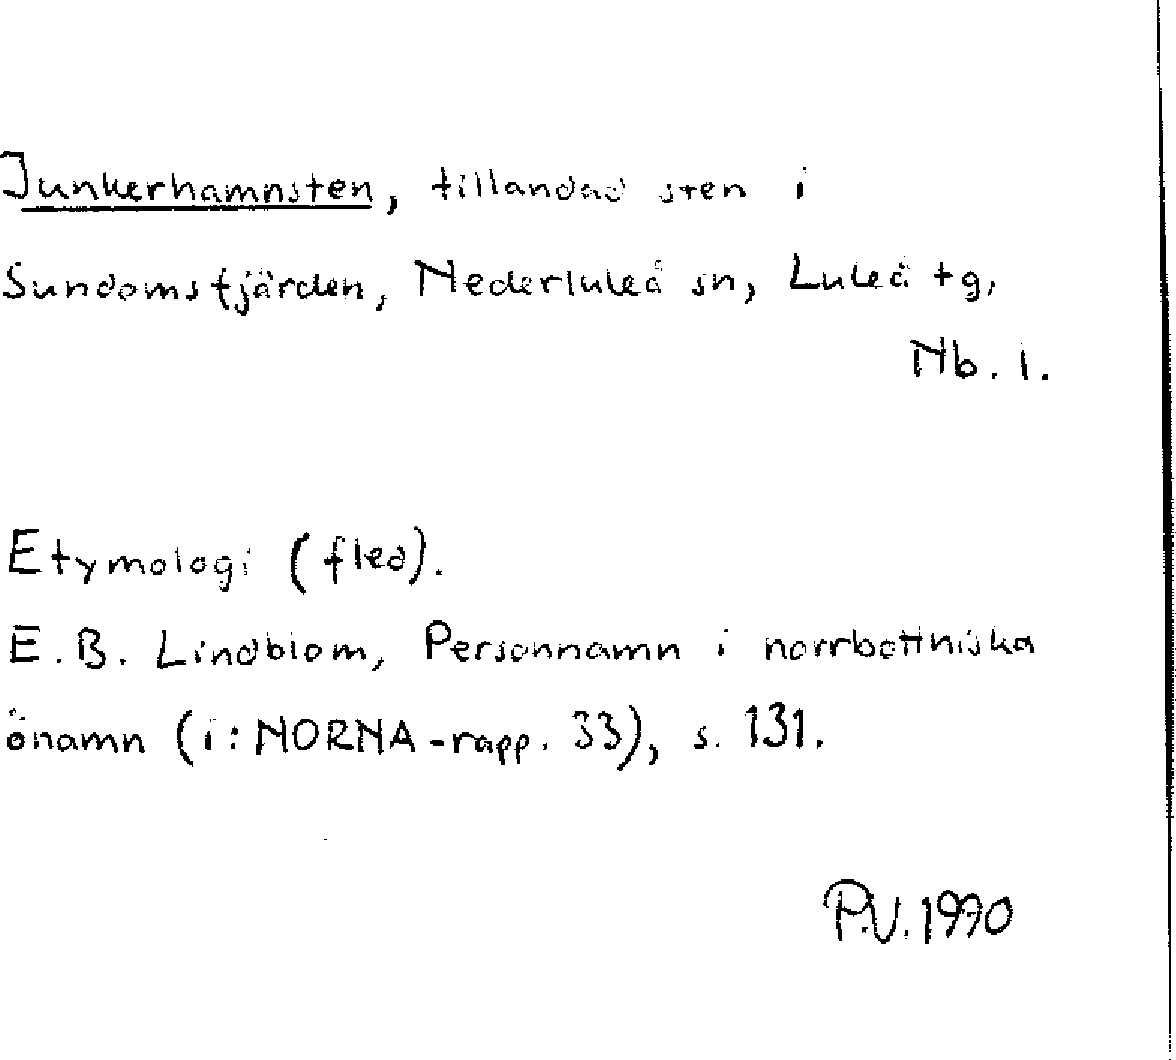 Junkerhamnsten, tillandad sten i
Sundomsfjärden, Nederluleå sn, Luleå tg,
Nb. l.
Etymologi (fled).
E.B. Lindblom, Personnamn i norrbottniska
önamn (i: NORNA-rapp. 33), s. 131.
P.V. 1990